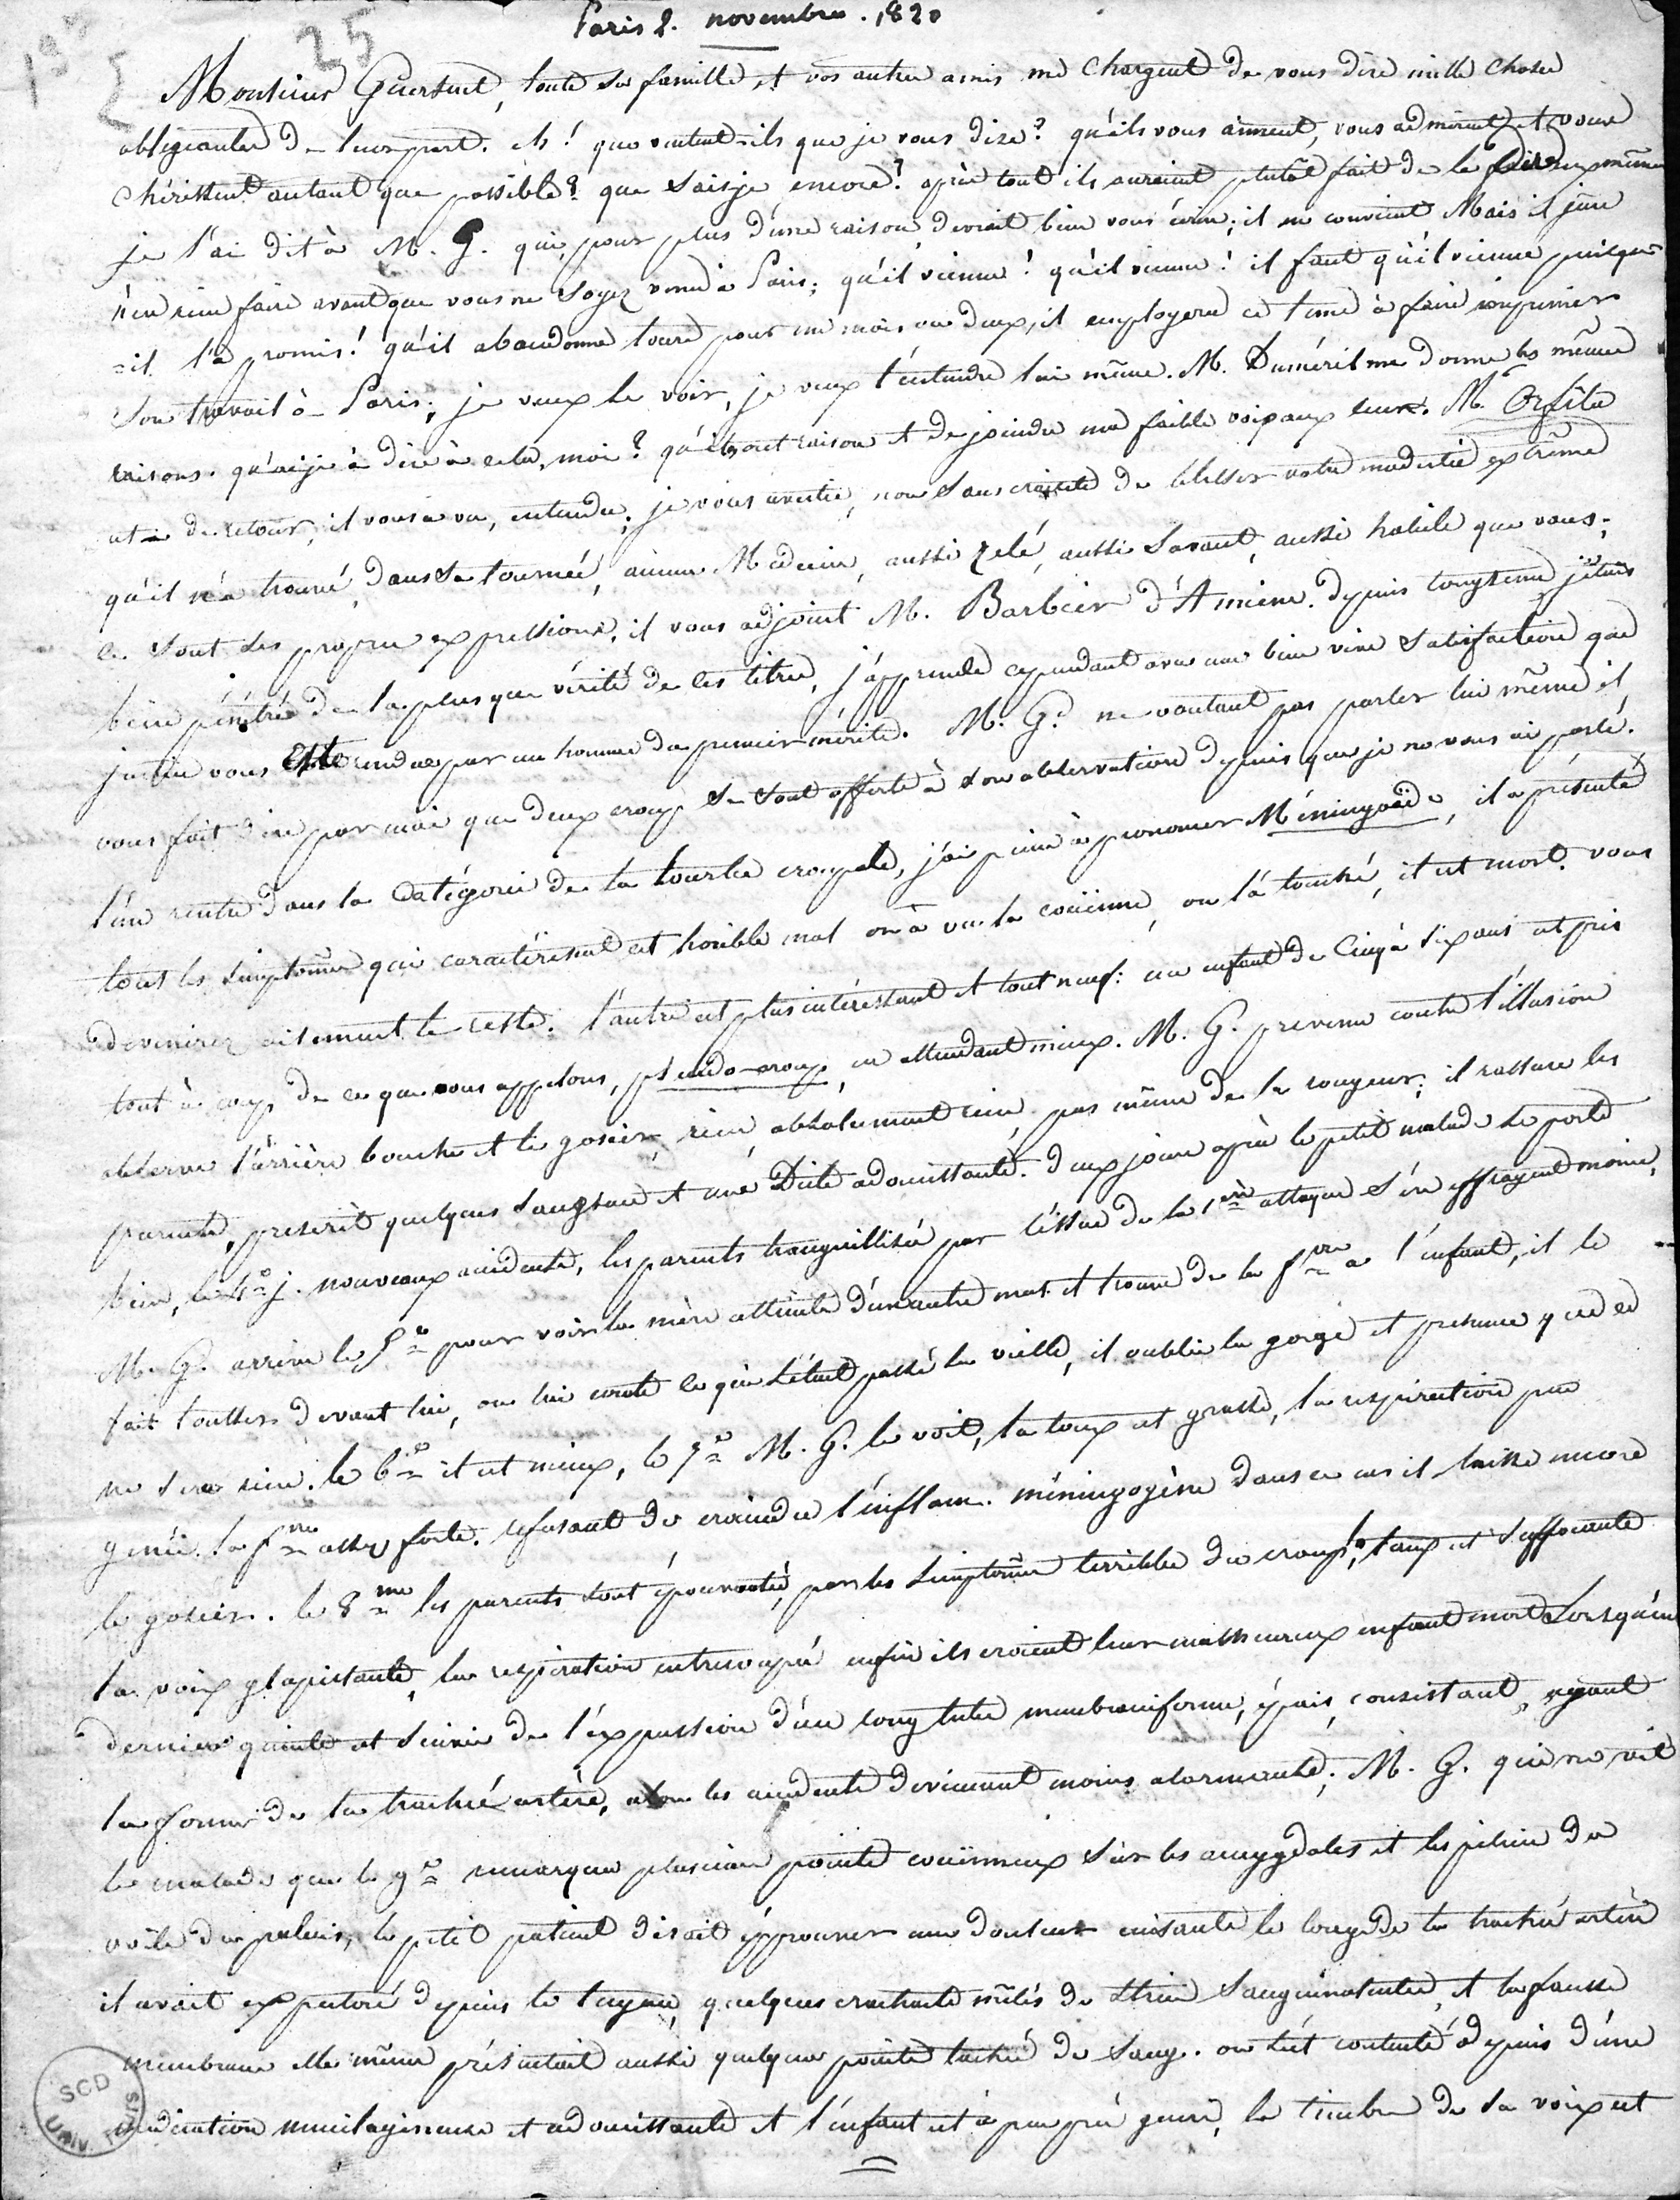 Paris 2. novembre. 1820
25
Monsieur Guersent, toute sa famille, et vos autres amis me chargent de vous dire mille choses
obligeantes de leur part. eh! que veulent-ils que je vous dise? qu'ils vous aiment, vous admirent et vous
chérissent autant que possible? que sais je encore? après tout ils auraient plutôt fait de le faire eux mêmes
je l'ai dit à M. G. qui, pour plus d'une raison devrait bien vous écrire; il en convient Mais il jure
n'en rien faire avant que vous ne soyez venu à Paris; qu'il vienne! qu'il vienne! il faut qu'il vienne puisqu'
=il l'a promis! qu'il abandonne tours pour un mois ou deux, il employera ce tems à faire imprimer
son travail à Paris; je veux le voir, je veux l'entendre lui même. M. Duméril me donne les mêmes
raisons. qu'ai je à dire à cela, moi? qu'ils ont raison et de joindre ma faible voix aux leurs. M. Orfila
est de retour, il vous a vu, entendu; je vous avertis, non sans crainte de blesser votre modestie extrême
qu'il n'a trouvé, dans sa tournée, aucun Médecin, aussi zelé, aussi savant, aussi habile que vous;
ce sont ses propres expressions, il vous adjoint M. Barbier d'Amiens. depuis longtems j'étais
bien pénétré de la plus que vérité de ces titres, j'apprends cependant avec une bien vive satisfaction que
justice vous est rendue par un homme du premier mérite. M. G. ne voulant pas parler lui même il
vous fait dire par moi que deux croup se sont offerts à son observation depuis que je ne vous ai parlé.
l'un rentre dans la Catégorie de la tourbe croupale, j'ai peine à prononcer Méningoïde, il a présenté
tous les simptômes qui caractérisent cet horible mal on a vu la couënne, on l'a touché, il est mort. vous
devinerez aisement le reste. l'autre est plus intéressant et tout neuf: un enfant de Cinq à six ans est pris
tout à coup de ce que nous appelons, pseudo-croup, en attendant mieux. M. G. prevenu contre l'illusion
observe l'arrière bouche et le gosier, rien, absolument rien, pas même de la rougeur; il rassure les
parents, prescrit quelques sangsues et une Diète adoucissante. deux jours après le petit malade se porte
bien, le 4e j. nouveaux accidents, les parents tranquillisés par l'issue de la 1ère attaque s'en effrayent moins,
M. G. arrive le 5e pour voir la mère atteinte d'un autre mal et trouve de la fvre a l'enfant, il le
fait tousser devant lui, on lui conte ce qui s'était passé la veille, il oublie la gorge et presume que ce
ne sera rien. le 6e il est mieux, le 7e M. G. le voit, la toux est grasse, la respiration peu
genée. la fvre assez forte. refusant de craindre l'inflam. méningogène dans ce cas il laisse encore
le gosier. le 8me les parents sont épouvantés, par les simptômes terribles du croup; la toux est suffocante
la voix glapissante, la respiration entrecoupée enfin ils croient leur malheureux enfant mort Lorsqu'une
dernière quinte est suivie de l'expulsion d'un long tube membraniforme, épais, consistant, ayant
la forme de la trachée artère, alors les accidents deviennent moins alarmants; M. G. qui ne vit
le malade que le 9e remarqua plusieurs points couënneux sur les amygdales et les piliers du
voile du palais, le petit patient disait éprouver une douleur cuisante le long de la trachée artère
il avait expectoré depuis le tuyau, quelques crachats mêlés de stries sanguinolentes, et la fausse
membrane elle même présentait aussi quelques points tachés de sang. on s'est contenté depuis d'une
médication mucilagineuse et adoucissante et l'enfant est à peu près gueri, le timbre de sa voix est
SCD
UNIV. TOURS